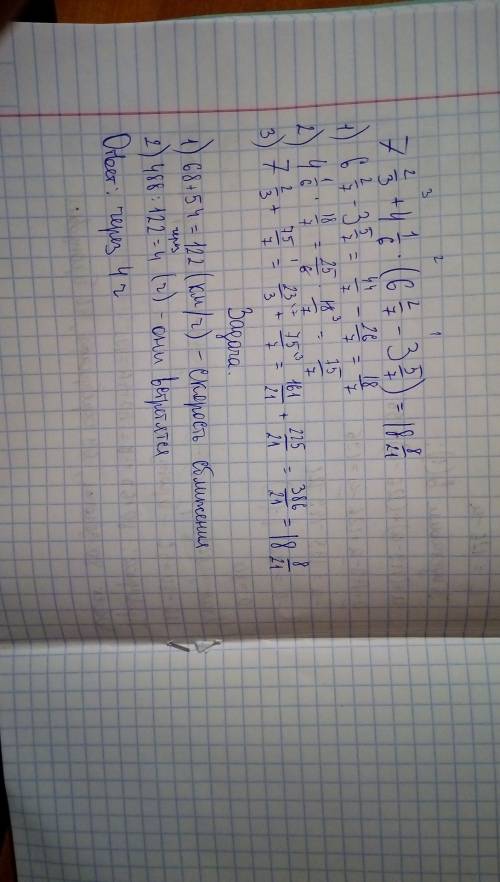 7 2/3 + 4 1/6 · (6 2/7 - 3 5/7) = 18 8/21
1) 6 2/7 - 3 5/7 = 44/7 - 26/7 = 18/7
2) 4 1/6 · 18/7 = 25/6 · 18/7 = 75/7
3) 7 2/3 + 75/7 = 23/3 + 75/7 = 161/21 + 225/21 = 386/21 = 18 8/21
Задача.
1) 68+54=122 (км/ч) - скорость сближения
2) 488:122=4 (ч) - они встретятся
Ответ: через 4ч